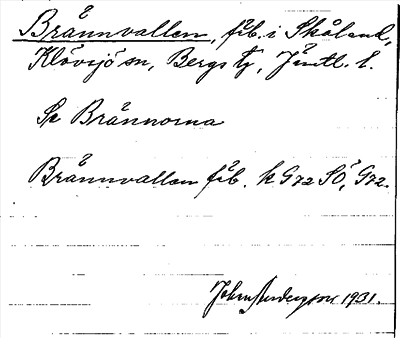 Brännvallen, fäb. i Skåland,
Klövsjö sn, Bergs tg, Jämtl. l.
Se Brännorna
Brännvallen fäb. k G72 SÖ, G72.
John Anderson 1931.